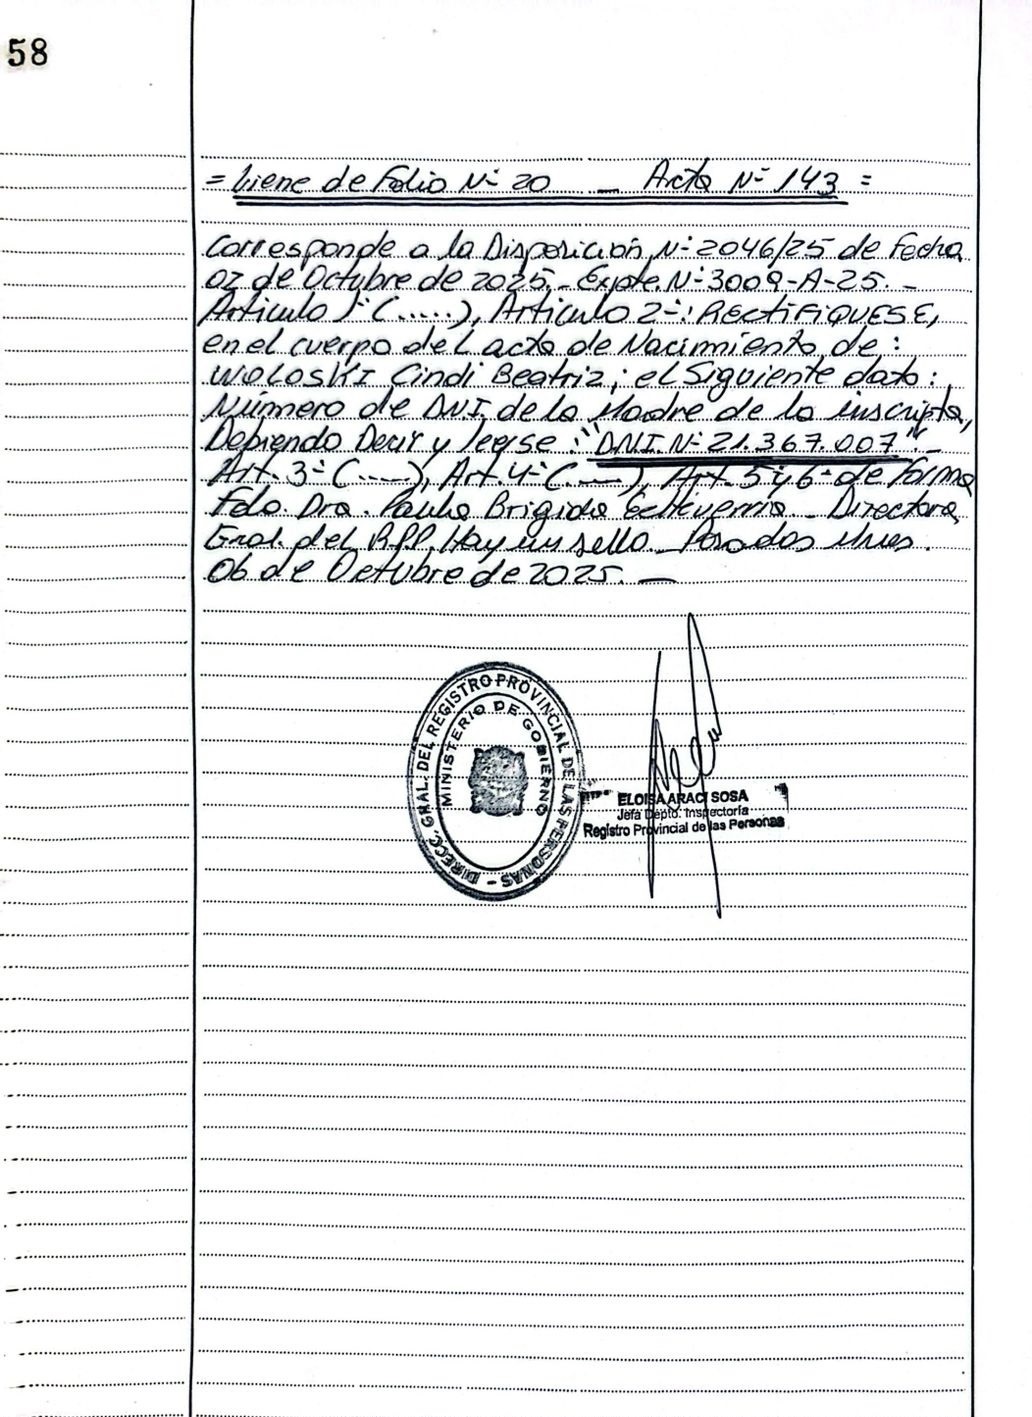 58
= Viene de Folio Nº 20 _ Acta Nº 143 =
Corresponde a la Disposición Nº 2046/25 de Fecha
02 de Octubre de 2025._ Expte. Nº 3009-A-25. _
Articulo 1º (.....), Articulo 2º: RECTIFIQUESE,
en el cuerpo del acta de Nacimiento de :
WOLOSKI Cindi Beatriz; el Siguiente dato:
Número de DNI. de la Madre de la inscripta,
Debiendo Decir y leerse : "D.N.I. Nº 21.367.007"._
Art. 3º (.....), Art. 4º (.....), Art. 5º y 6º de forma
Fdo. Dra. Paula Brigida Echeverria _ Directora
Gral. del R.P.P. Hay un sello _ Posadas Mnes.
06 de Octubre de 2025. _
DIRECC. GRAL. DEL REGISTRO PROVINCIAL DE LAS PERSONAS -
MINISTERIO DE GOBIERNO
ELOISA ARACI SOSA
Jefa Depto. Inspectoría
Registro Provincial de las Personas